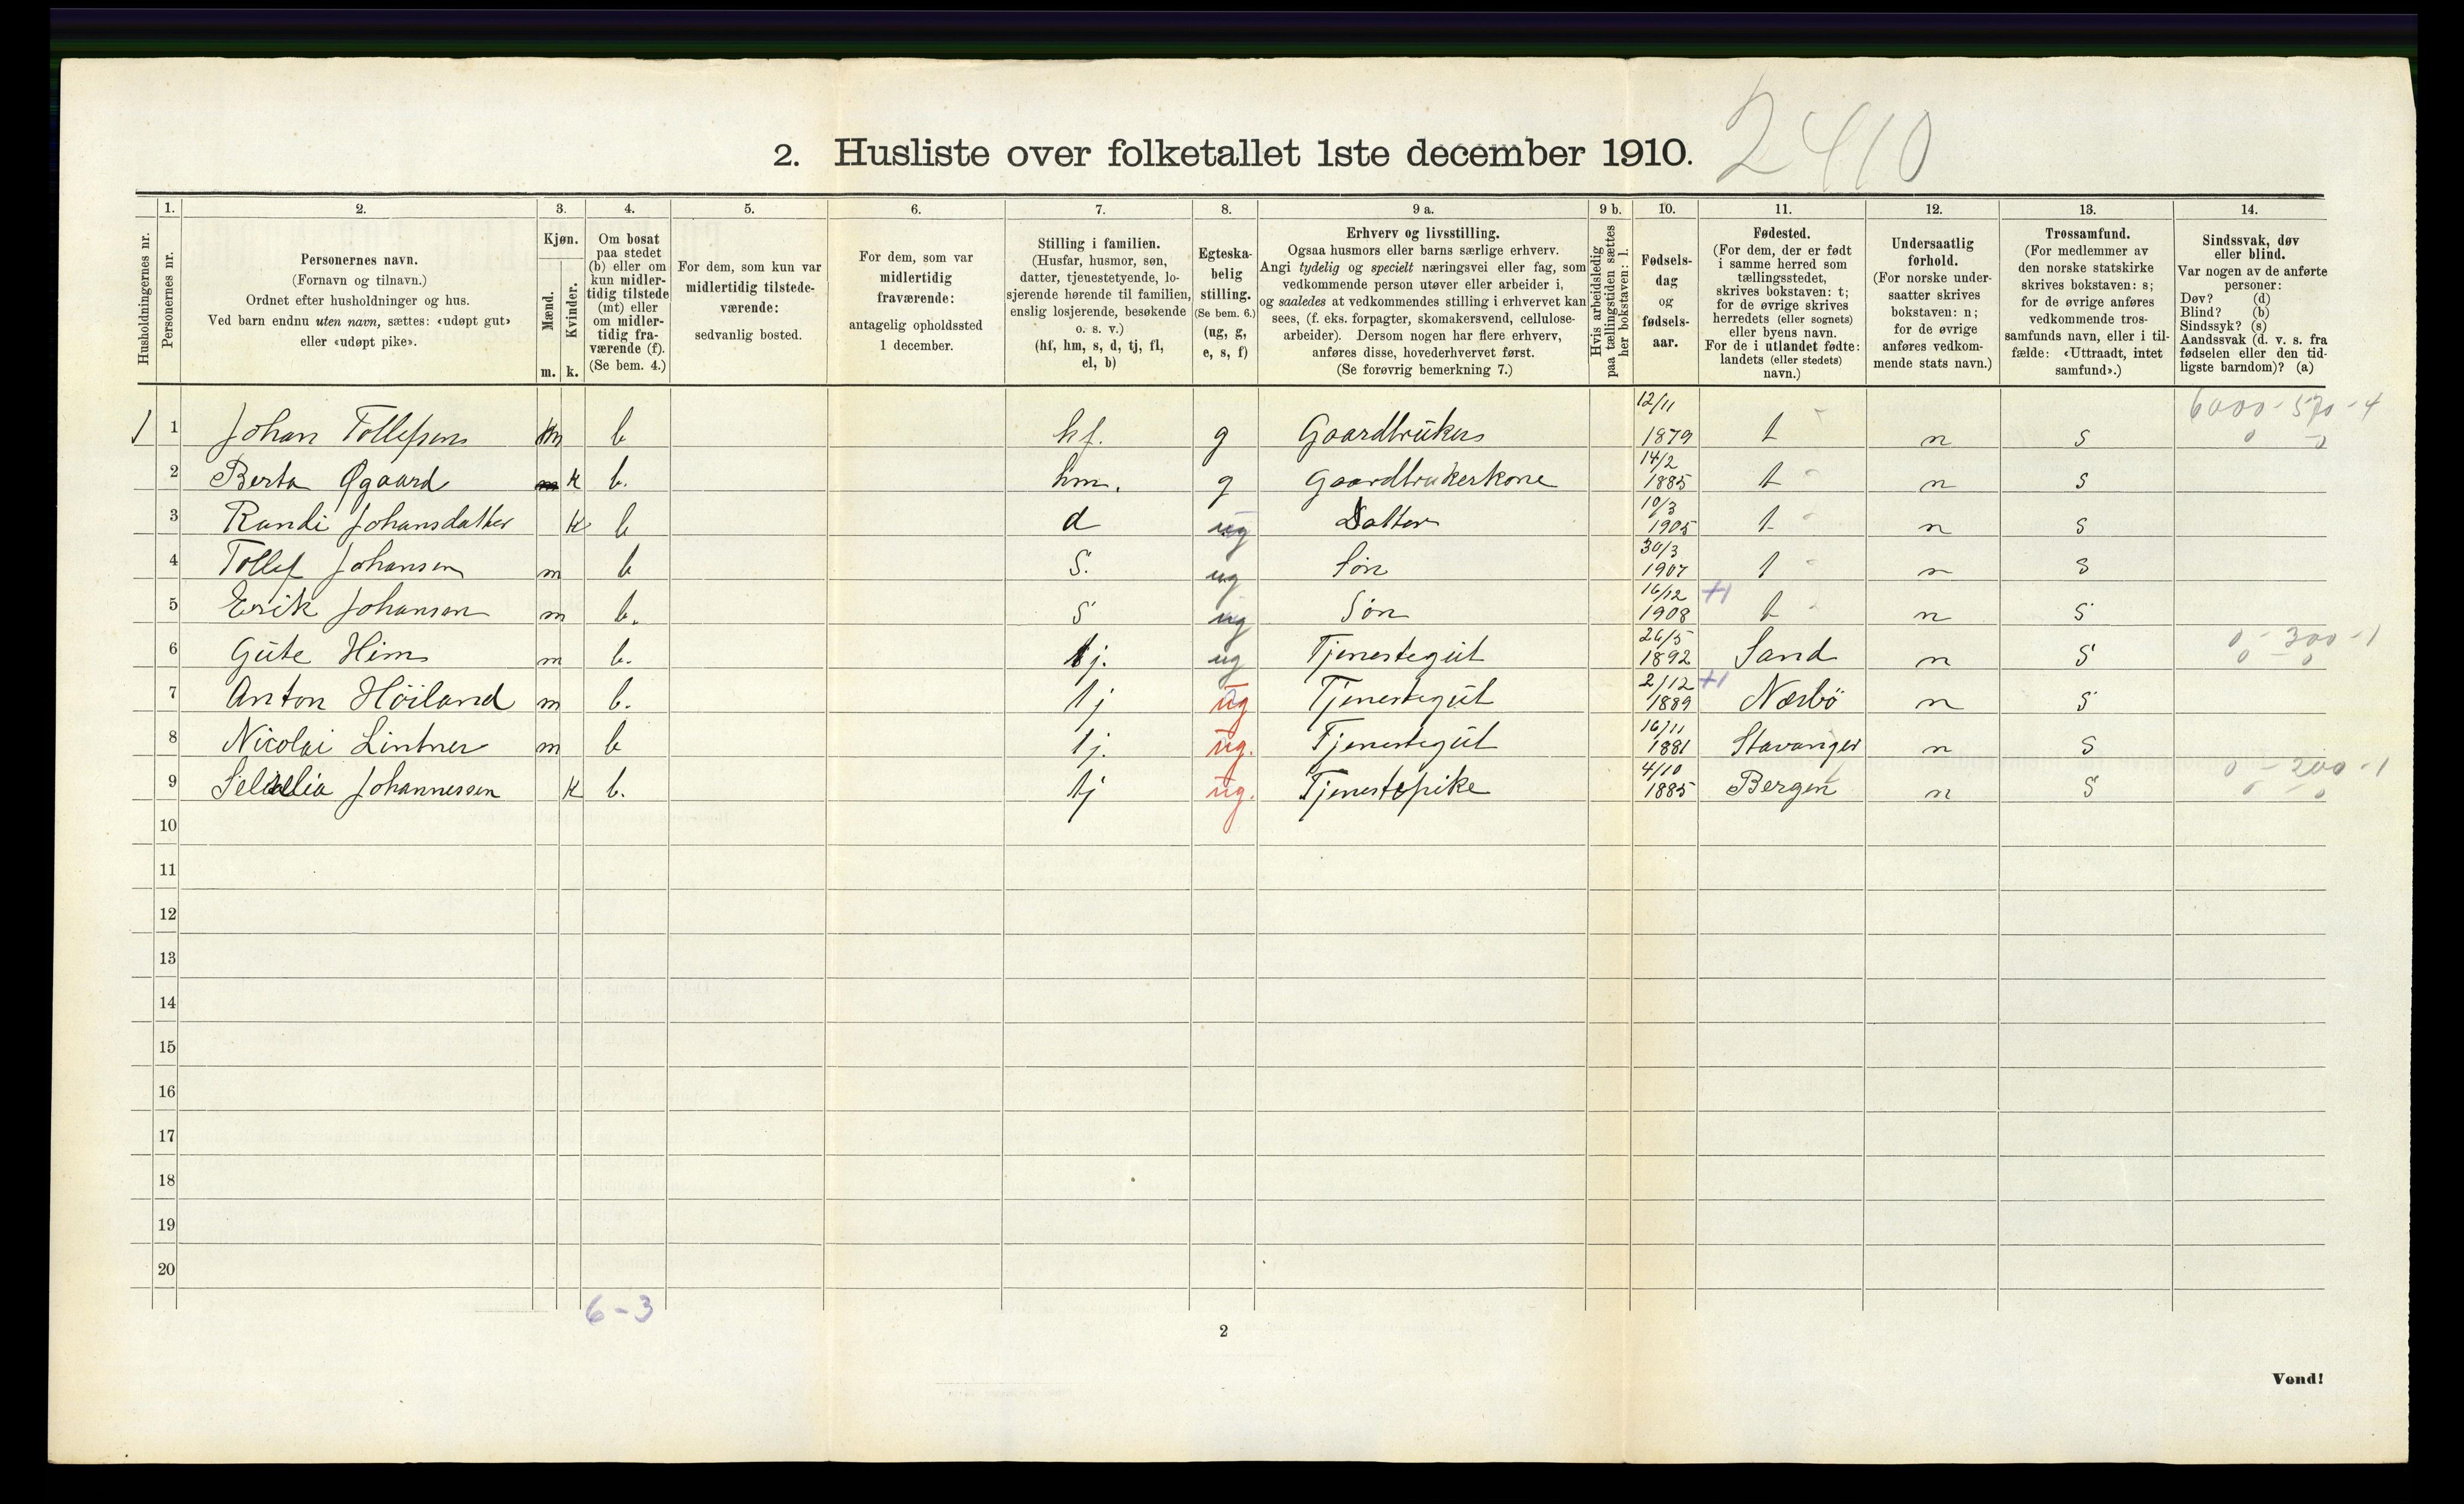 2. Husliste over folketallet 1ste december 1910. 2410
1. 2. 3. 4. 5. 6. 7. 8. 9 a. 9 b. 10. 11. 12. 13. 14.
Husholdningernes nr.
Personernes nr.
Personernes navn.
(Fornavn og tilnavn.)
Ordnet efter husholdninger og hus.
Ved barn endnu uten navn, sættes: «udøpt gut»
eller «udøpt pike».
Kjøn.
Mænd.
Kvinder.
m. k.
Om bosat
paa stedet
(b) eller om
kun midler-
tidig tilstede
(mt) eller
om midler-
tidig fra-
værende (f).
(Se bem. 4.)
For dem, som kun var
midlertidig tilstede-
værende:
sedvanlig bosted.
For dem, som var
midlertidig
fraværende:
antagelig opholdssted
1 december.
Stilling i familien.
(Husfar, husmor, søn,
datter, tjenestetyende, lo-
sjerende hørende til familien,
enslig losjerende, besøkende
o. s. v.)
(hf, hm, s, d, tj, fl,
el, b)
Egteska-
belig
stilling.
(Se bem. 6.)
(ug, g,
e, s, f)
Erhverv og livsstilling.
Ogsaa husmors eller barns særlige erhverv.
Angi tydelig og specielt næringsvei eller fag, som
vedkommende person utøver eller arbeider i,
og saaledes at vedkommendes stilling i erhvervet kan
sees, (f. eks. forpagter, skomakersvend, cellulose-
arbeider). Dersom nogen har flere erhverv,
anføres disse, hovederhvervet først.
(Se forøvrig bemerkning 7.)
Hvis arbeidsledig
paa tællingstiden sættes
her bokstaven: l.
Fødsels-
dag
og
fødsels-
aar.
Fødested.
(For dem, der er født
i samme herred som
tællingsstedet,
skrives bokstaven: t;
for de øvrige skrives
herredets (eller sognets)
eller byens navn.
For de i utlandet fødte:
landets (eller stedets)
navn.)
Undersaatlig
forhold.
(For norske under-
saatter skrives
bokstaven: n;
for de øvrige
anføres vedkom-
mende stats navn.)
Trossamfund.
(For medlemmer av
den norske statskirke
skrives bokstaven: s;
for de øvrige anføres
vedkommende tros-
samfunds navn, eller i til-
fælde: «Uttraadt, intet
samfund».)
Sindssvak, døv
eller blind.
Var nogen av de anførte
personer:
Døv? (d)
Blind? (b)
Sindssyk? (s)
Aandssvak (d. v. s. fra
fødselen eller den tid-
ligste barndom)? (a)
12/11 6000 - 570 - 4
1 1 Johan Tollefsen m b hf. g Gaardbruker 1879 t n s 0 - 0
14/2
2 Berta Øgaard m k b. hm. g Gaardbrukerkone 1885 t n s
10/3
3 Randi Johansdatter k b d ug Datter 1905 t n s
30/3
4 Tollef Johansen m b s. ug Søn 1907 t n s
16/12 +1
5 Erik Johansen m b. s ug Søn 1908 t n s
26/5 0 - 300 - 1
6 Gute Him m b. tj. ug Tjenestegut 1892 Sand n s 0 - 0
2/12 +1
7 Anton Høiland m b. tj ug Tjenestegut 1889 Nærbö n s
16/11
8 Nicolai Lintner m b tj. ug. Tjenestegut 1881 Stavanger n s
4/10 0 - 200 - 1
9 Johannessen k b. tj ug. Tjenestepike 1885 Bergen n s 0 - 0
10
11
12
13
14
15
16
17
18
19
20
6 - 3
2
Vend!